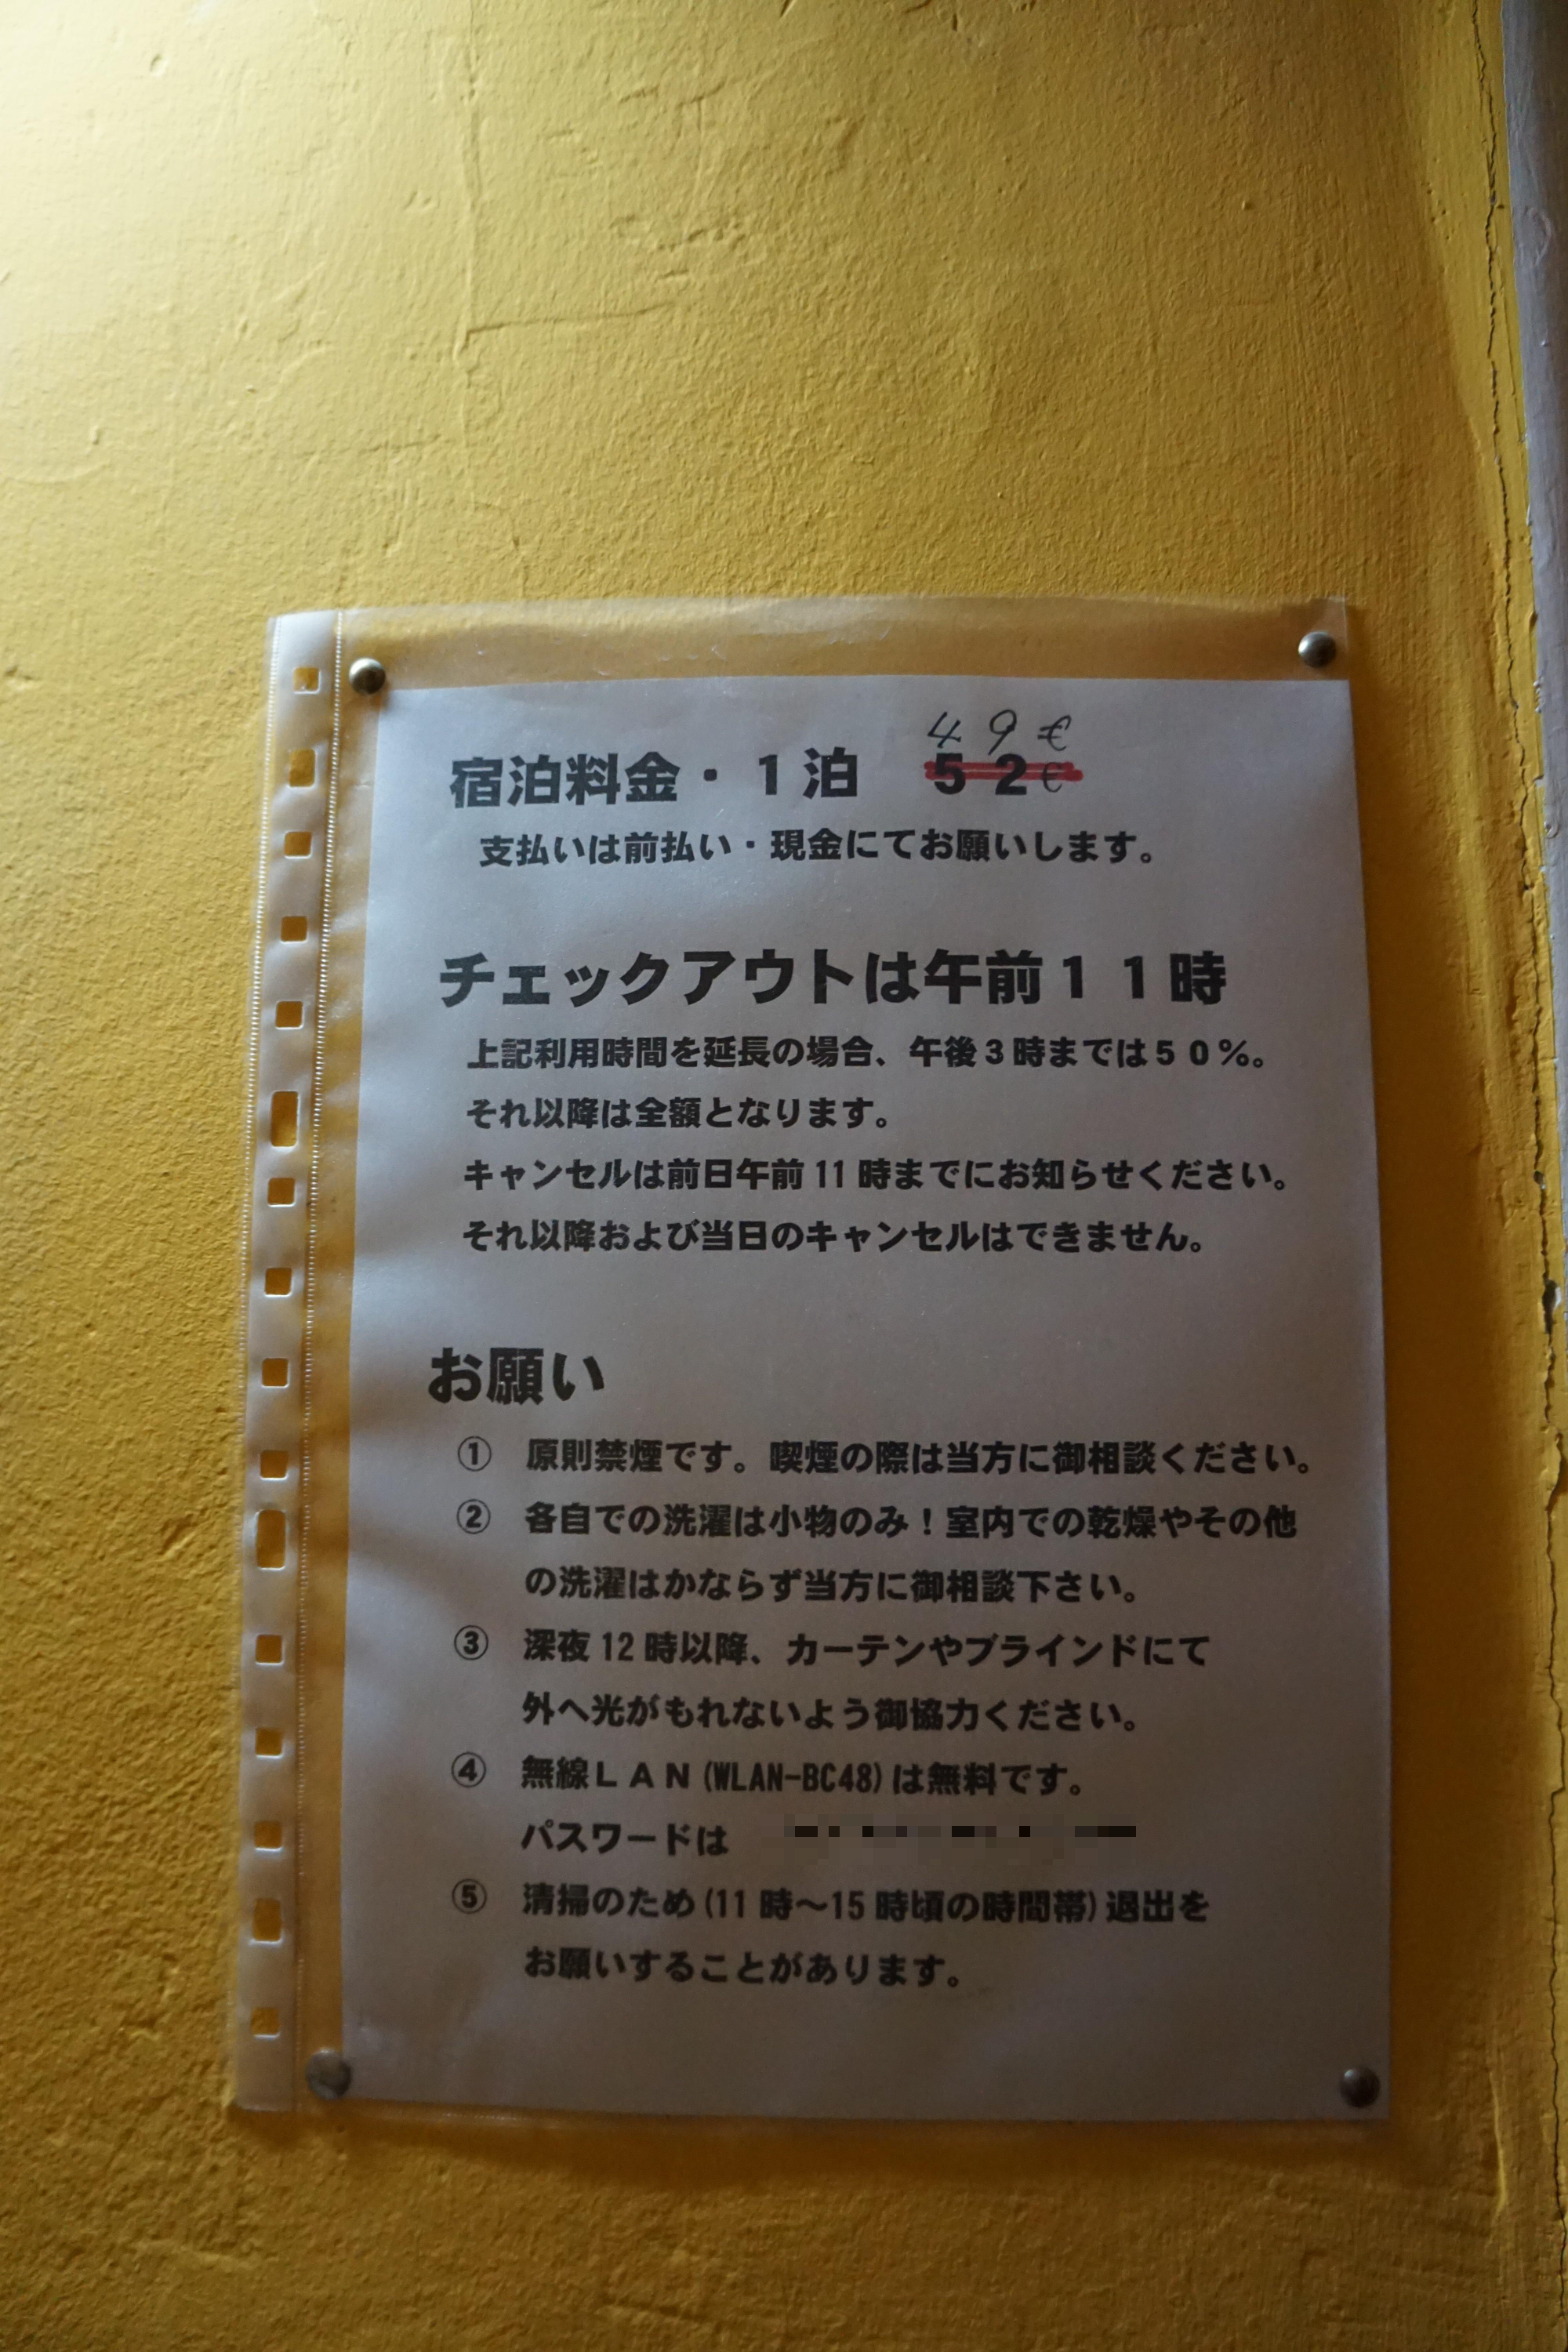 49€
宿泊料金・1泊 52€
支払いは前払い・現金にてお願いします。
チェックアウトは午前11時
上記利用時間を延長の場合、午後3時までは50%。
それ以降は全額となります。
キャンセルは前日午前11時までにお知らせください。
それ以降および当日のキャンセルはできません。
お願い
① 原則禁煙です。喫煙の際は当方に御相談ください。
② 各自での洗濯は小物のみ!室内での乾燥やその他
の洗濯はかならず当方に御相談下さい。
③ 深夜12時以降、カーテンやブラインドにて
外へ光がもれないよう御協力ください。
④ 無線LAN(WLAN-BC48)は無料です。
パスワードは
⑤ 清掃のため(11時～15時頃の時間帯)退出を
お願いすることがあります。